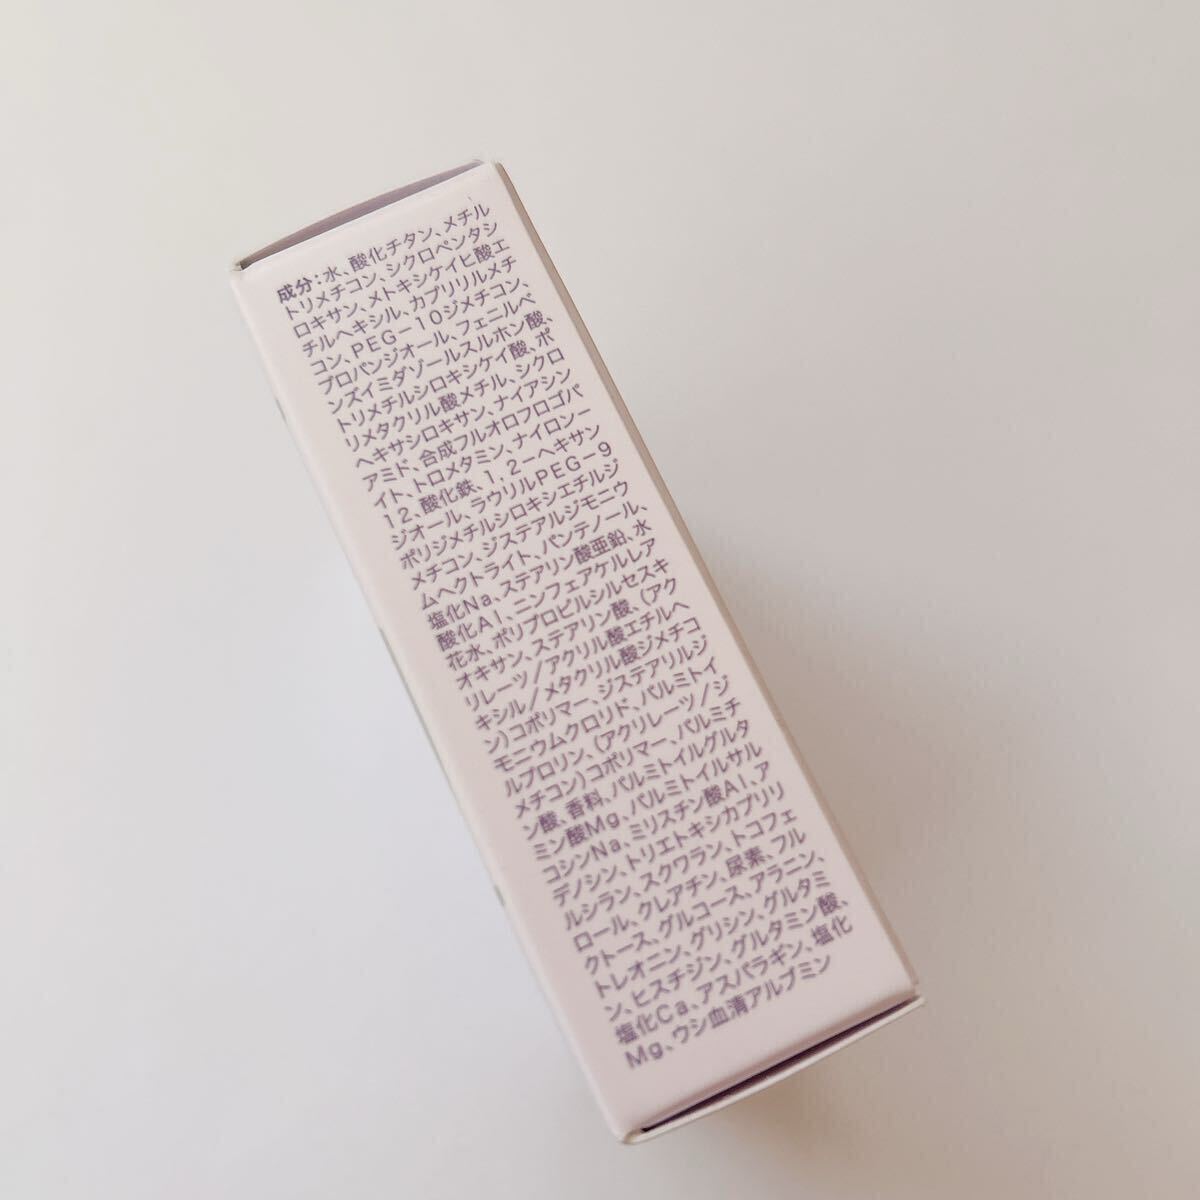 成分：水、酸化チタン、メチル
トリメチコン、シクロペンタシ
ロキサン、メトキシケイヒ酸エ
チルヘキシル、カプリリルメチ
コン、PEG－10ジメチコン、
プロパンジオール、フェニルベ
ンズイミダゾールスルホン酸、
トリメチルシロキシケイ酸、ポ
リメタクリル酸メチル、シクロ
ヘキサシロキサン、ナイアシン
アミド、合成フルオロフロゴパ
イト、トロメタミン、ナイロン－
12、酸化鉄、1，2－ヘキサン
ジオール、ラウリルPEG－9
ポリジメチルシロキシエチルジ
メチコン、ジステアルジモニウ
ムヘクトライト、パンテノール、
塩化Na、ステアリン酸亜鉛、水
酸化Al、ニンフェアケルレア
花水、ポリプロピルシルセスキ
オキサン、ステアリン酸、（アク
リレーツ／アクリル酸エチルヘ
キシル／メタクリル酸ジメチコ
ン）コポリマー、ジステアリルジ
モニウムクロリド、パルミトイ
ルプロリン、（アクリレーツ／ジ
メチコン）コポリマー、パルミチ
ン酸、香料、パルミトイルグルタ
ミン酸Mg、パルミトイルサル
コシンNa、ミリスチン酸Al、ア
デノシン、トリエトキシカプリリ
ルシラン、スクワラン、トコフェ
ロール、クレアチン、尿素、フル
クトース、グルコース、アラニン、
トレオニン、グリシン、グルタミ
ン、ヒスチジン、グルタミン酸、
塩化Ca、アスパラギン、塩化
Mg、ウシ血清アルブミン